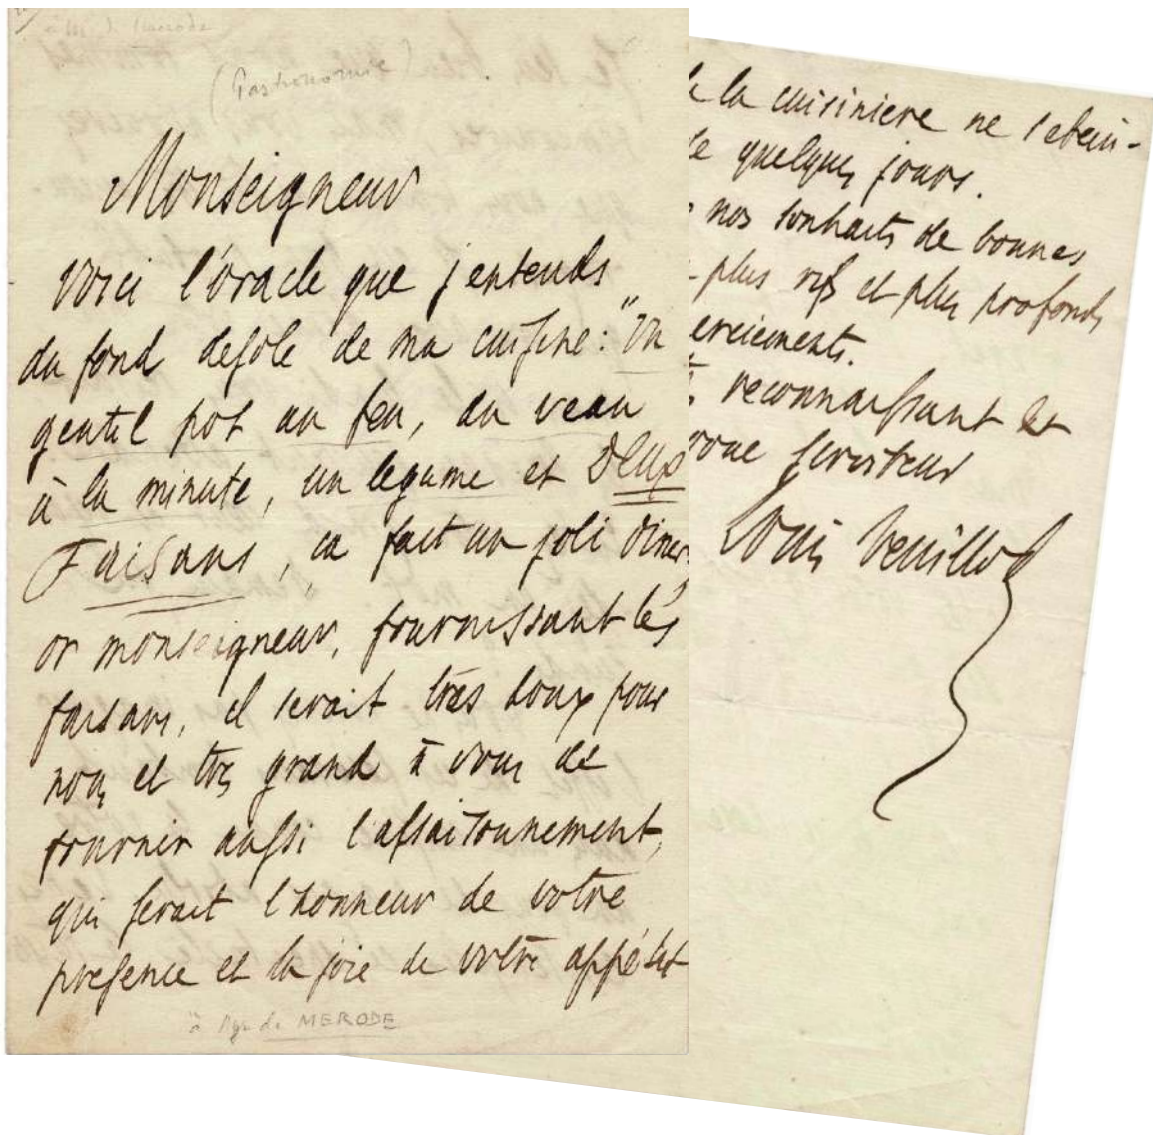 à M. de Merode
(Gastronomie)
Monseigneur
Voici l'oracle que j'entends
du fond desolé de ma cuisine : "Un
gentil pot au feu, du veau
à la minute, un legume et Deux
Faisans, ca fait un joli diner,
or monseigneur, fournissant les
faisans, il serait très doux pour
nous et très grand à vous de
fournir aussi l'assaisonnement,
qui serait l'honneur de votre
presence et la joie de votre appétit
à Mgr de MERODE
la cuisiniere ne
quelques jours.
nos souhaits de bonnes
plus vifs et plus profonds
erciements.
reconnaissant et
serviteur
Louis Veuillot